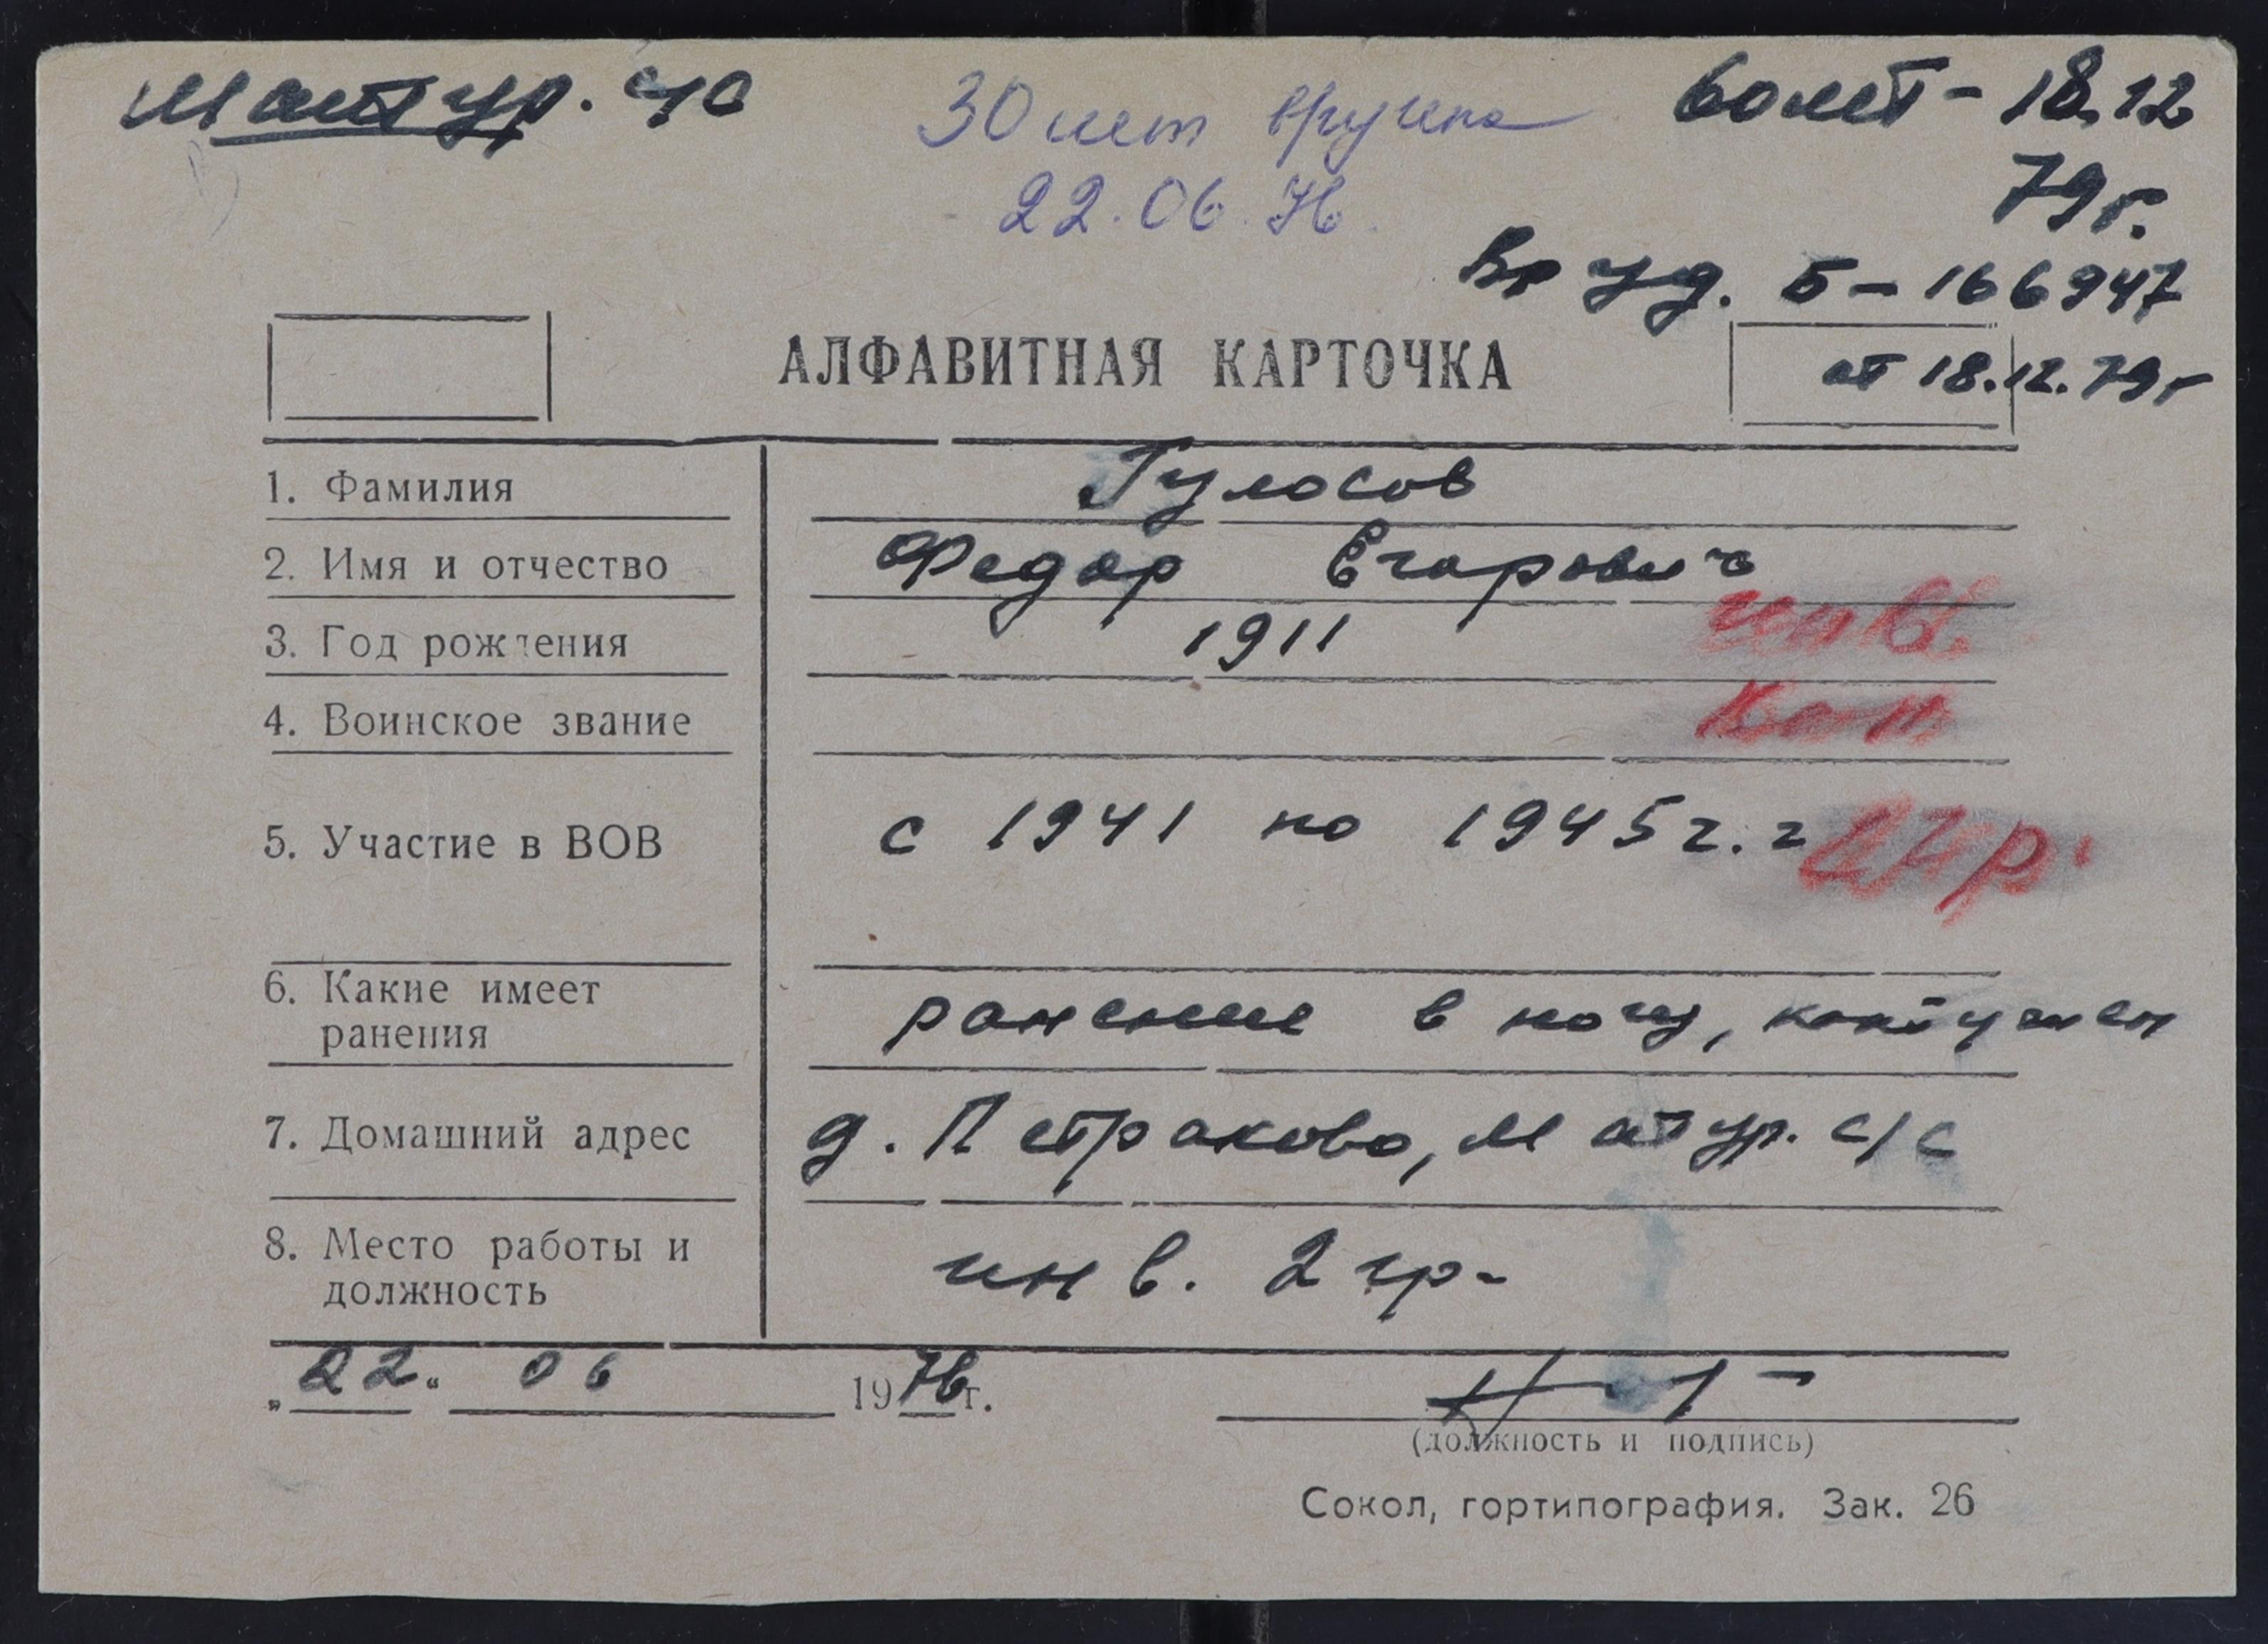 Матур. с/с
30 лет вручена
22.06.76.
60 лет - 18.12
79 г.
Вр уд. Б - 166947
от 18.12.79 г
АЛФАВИТНАЯ КАРТОЧКА
1. Фамилия Гулосов
2. Имя и отчество Федор Егорович
инв.
3. Год рождения 1911
4. Воинское звание
5. Участие в ВОВ с 1941 по 1945 г. г
гр.
6. Какие имеет
ранения ранение в ногу, контужен
7. Домашний адрес д. Петраково, Матур. с/с
8. Место работы и
должность инв. 2 гр-
„22." 06 1976 г.
(должность и подпись)
Сокол, гортипография. Зак. 26